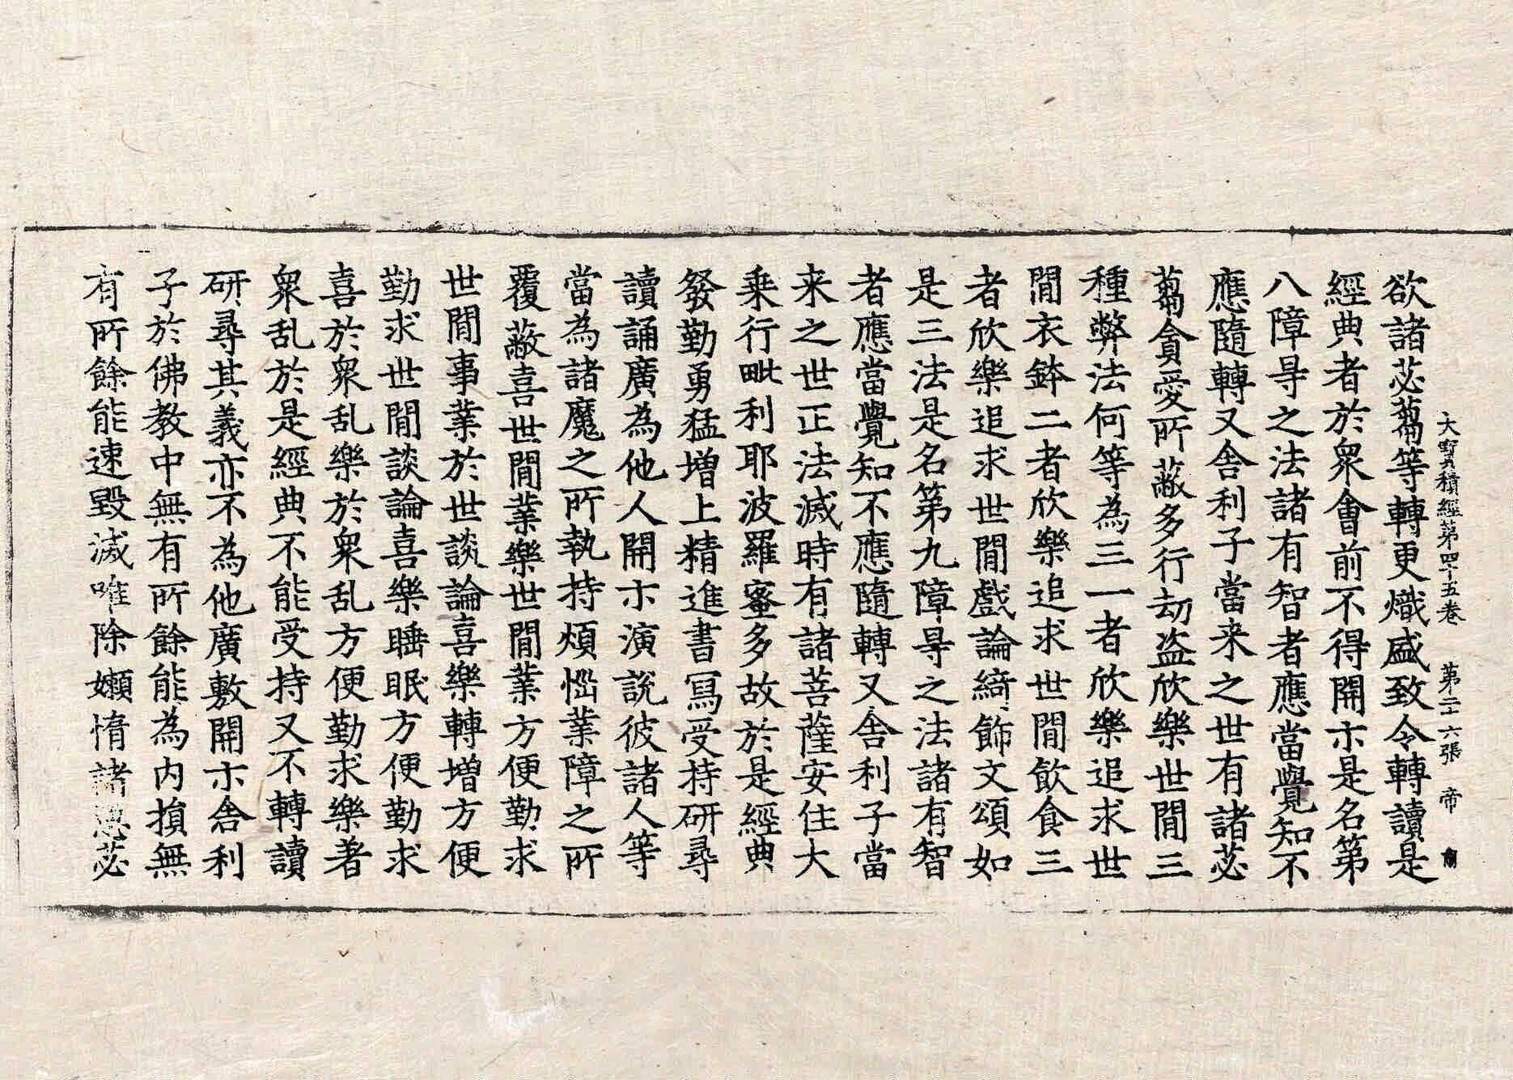 大寶積經第四十五卷 第二十六張 帝
欲諸苾蒭等轉更熾盛致令轉讀是
經典者於衆會前不得開示是名第
八障㝵之法諸有智者應當覺知不
應隨轉又舍利子當来之世有諸苾
蒭貪愛所蔽多行劫盗欣樂世間三
種弊法何等為三一者欣樂追求世
間衣鉢二者欣樂追求世間飲食三
者欣樂追求世間戲論綺飾文頌如
是三法是名第九障㝵之法諸有智
者應當覺知不應隨轉又舍利子當
来之世正法滅時有諸菩薩安住大
乗行毗利耶波羅蜜多故於是經典
發勤勇猛増上精進書寫受持研尋
讀誦廣為他人開示演說彼諸人等
當為諸魔之所執持煩惱業障之所
覆蔽喜世間業樂世間業方便勤求
世間事業於世談論喜樂轉増方便
勤求世間談論喜樂睡眠方便勤求
喜於衆乱樂於衆乱方便勤求樂著
衆乱於是經典不能受持又不轉讀
研尋其義亦不為他廣敷開示舍利
子於佛教中無有所餘能為内損無
有所餘能速毀滅唯除嬾惰諸惡苾